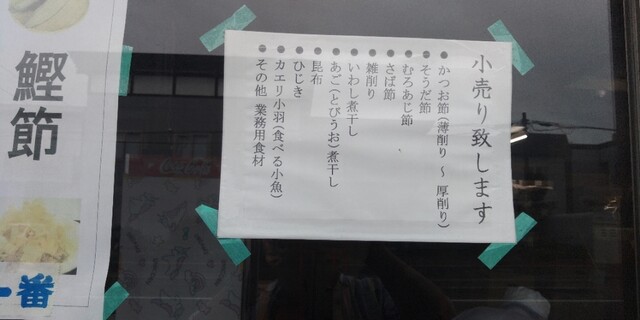 小売り致します
● かつお節(薄削り ～ 厚削り)
● そうだ節
● むろあじ節
● さば節
● 雑削り
● いわし煮干し
● あご(とびうお)煮干し
● 昆布
● ひじき
● カエリ小羽(食べる小魚)
● その他 業務用食材
鰹節
一番
Coca-Cola